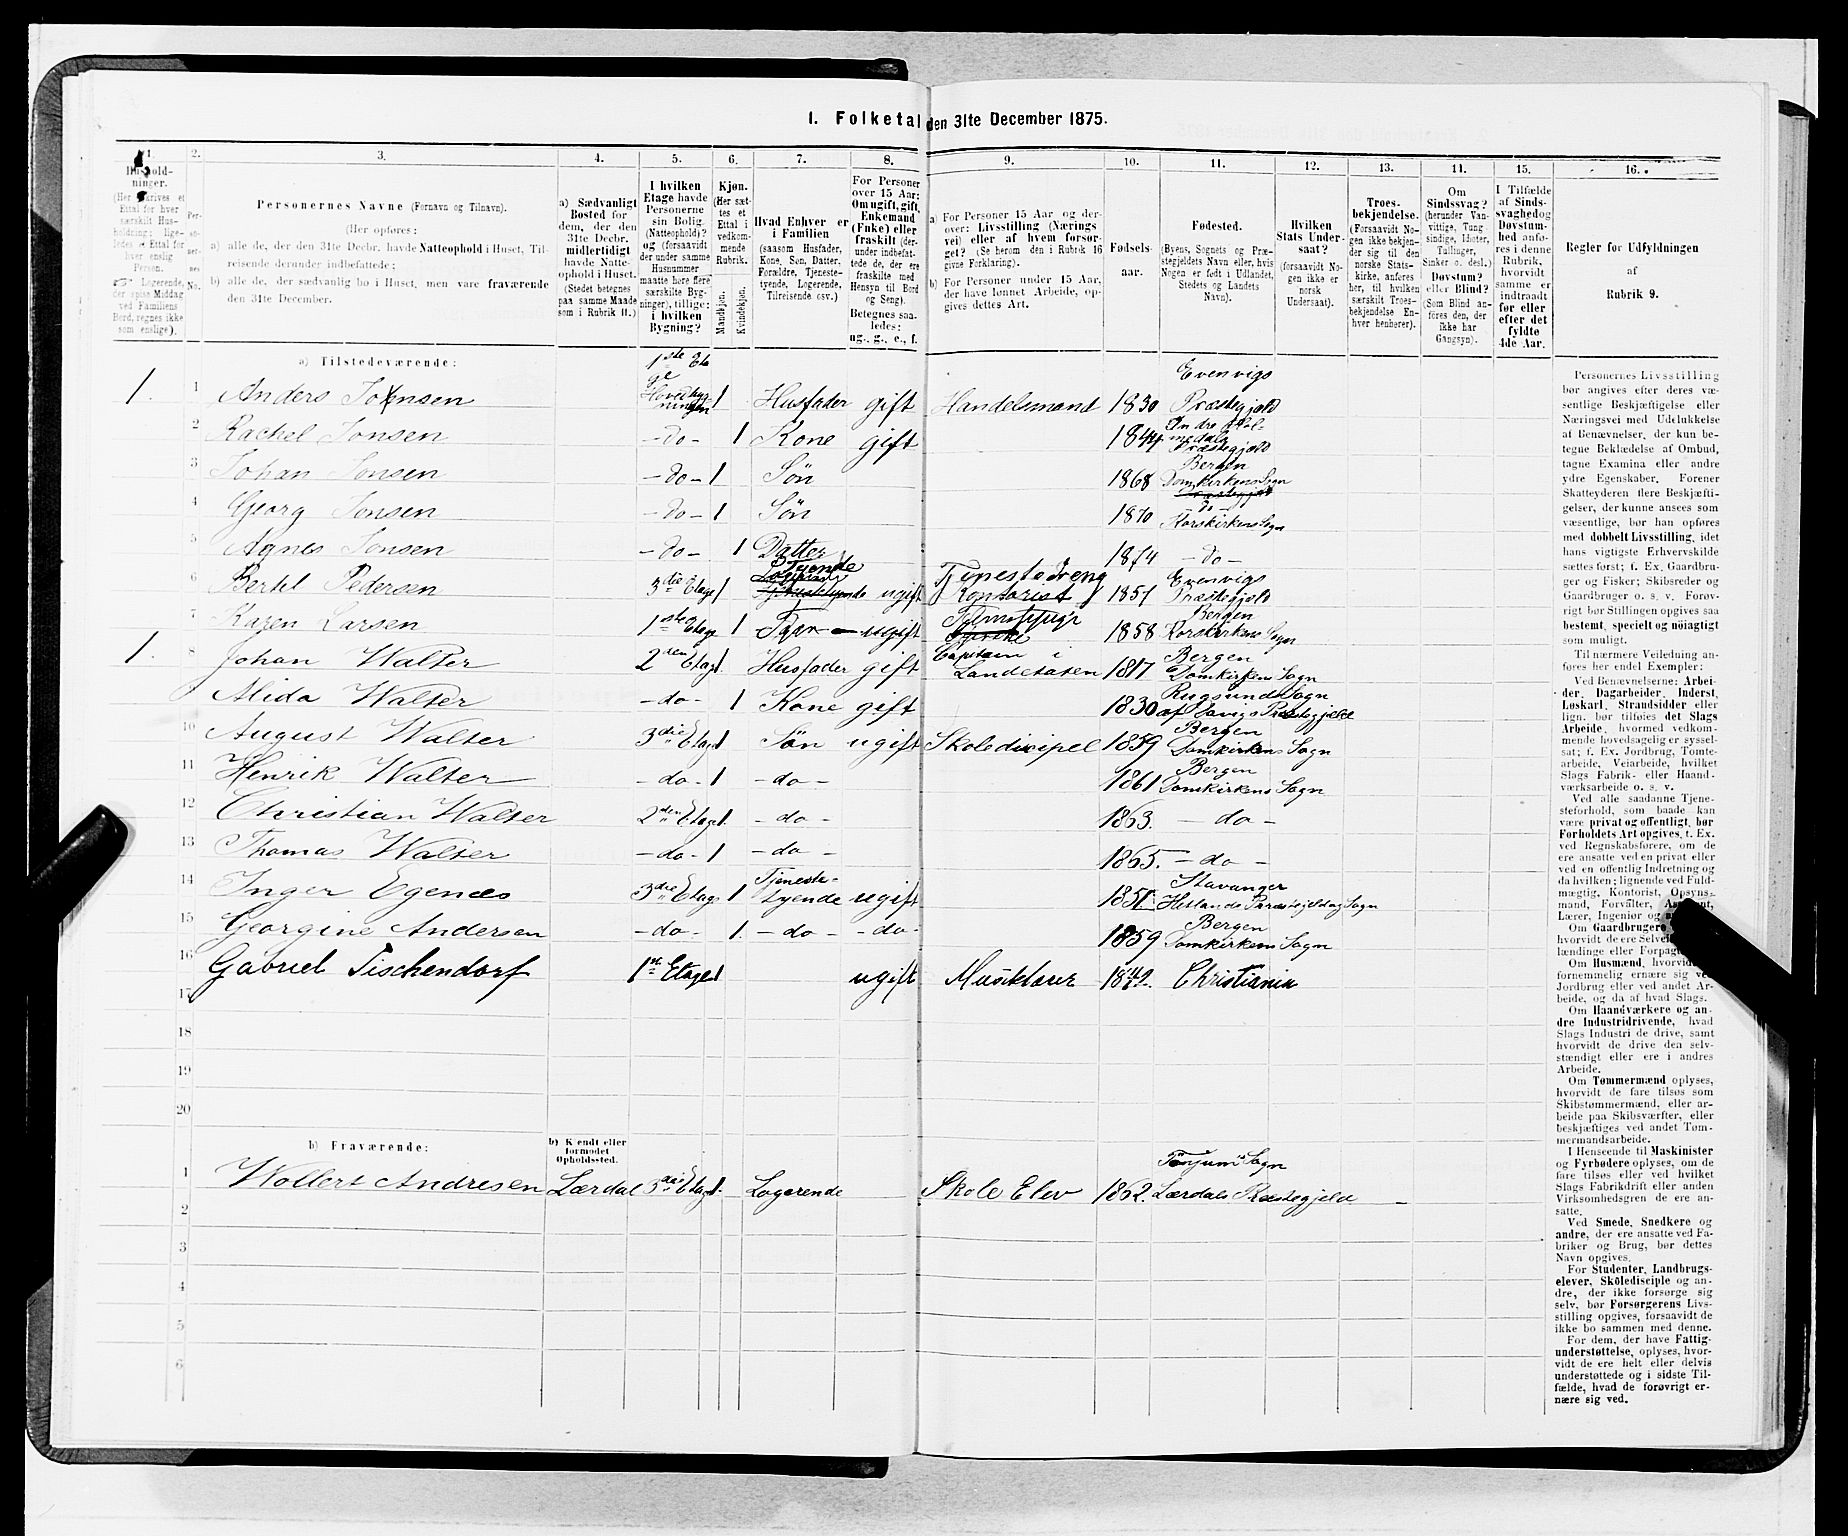 1. Folketal den 31te December 1875.
1. 2. 3. 4. 5. 6. 7. 8. 9. 10. 11. 12. 13. 14. 15. 16.
Personernes Navne (Fornavn og Tilnavn).
(Her opføres:
a) alle de, der den 31te Decbr. havde Natteophold i Huset, Tilreisende derunder indbefattede;
b) alle de, der sædvanlig bo i Huset, men vare fraværende den 31te December.
a) Sædvanligt Bosted for dem, der den 31te Decbr. midlertidigt havde Natteophold i Huset. (Stedet betegnes paa samme Maade som i Rubrik 11.)
I hvilken Etage havde Personerne sin Bolig. (Natteophold)? og (forsaavidt der under samme Husnummer maatte høre flere særskilte Bygninger), tillige: i hvilken Bygning?
Kjøn. (Her sættes et Ettal i vedkommende Rubrik.
Mandkjøn. Kvindekjøn.
Hvad Enhver er i Familien (saasom Husfader, Kone, Søn, Datter, Forældre, Tjenestetyende, Logerende, Tilreisende osv.)
For Personer over 15 Aar: Om ugift, gift, Enkemand (Enke) eller fraskilt (derunder indbefattede de, der ere fraskilte med Hensyn til Bord og Seng). Betegnes saaledes: ug., g., e., f.
a) For Personer 15 Aar og derover: Livsstilling (Næringsvei) eller af hvem forsørget? (Se herom den i Rubrik 16 givne Forklaring).
b) For Personer under 15 Aar, der have lønnet Arbeide, opgives dettes Art.
Fødselsaar.
Fødested. (Byens, Sognets og Præstegjeldets Navn eller, hvis Nogen er født i Udlandet, Stedets og Landets Navn).
Hvilken Stats Undersaat? (forsaavidt Nogen ikke er norsk Undersaat).
Troesbekjendelse. (Forsaavidt Nogen ikke bekjender sig til den norske Statskirke, anføres her, til hvilken særskilt Troesbekjendelse Enhver henhører).
Om Sindssvag? (herunder Vanvittige, Tungsindige, Idioter, Tullinger, Sinker o. desl.) Døvstum? eller Blind? (Som Blind anføres den, der ikke har Gangsyn).
I Tilfælde af Sindssvaghed og Døvstumhed anføres i denne Rubrik, hvorvidt samme er indtraadt før eller efter det fyldte 4de Aar.
Regler for Udfyldningen af Rubrik 9.
a) Tilstedeværende:
1. 1 Anders Johnsen 1ste Etage Hovedbygningen 1 Husfader gift Handelsmand 1830 Evenvigs Præstegjæld
2 Rachel Jonsen -do- 1 Kone gift 1844 Præstegjæld
3 Johan Jonsen -do- 1 Søn 1868 Bergen Domkirkens Sogn
4 Georg Jonsen -do- 1 Søn 1870 do Korskirkens Sogn
5 Agnes Jonsen -do- 1 Datter 1874 -do-
6 Bertel Pedersen 3die Etage 1 Tyende ugift Tjenestedreng Kontorist 1857 Evenvigs Præstegjæld
7 Karen Larsen 1ste Etage 1 ugift 1858 Bergen Korskirkens Sogn
1. 8 Johan Walter 2den Etage 1 Husfader gift Capitain i Landetaten 1817 Bergen Domkirkens Sogn
Alida Walter -do- 1 Kone gift 1830 Rugsunds Sogn af Davigs Præstegjeld
10 August Walter 3die Etage 1 Søn ugift Skoledisipel 1859 Bergen Domkirkens Sogn
11 Henrik Walter -do- 1 -do- 1861 Bergen Domkirkens Sogn
12 Christian Walter 2den Etage 1. -do- 1863. -do-
13 Thomas Walter -do- 1 -do- 1865. -do-
14 Inger Egenæs 3die Etage 1 Tjenestetyende ugift 1851 Stavanger Hetlands Præstegjeld og Sogn
15 Georgine Andersen -do- 1. -do- -do- 1859 Bergen Domkirkens Sogn
16 Gabriel Tischendorf 1ste Etage 1 ugift Musiklærer 1842. Christiania
17
18
19
20
b) Fraværende:
b) Kendt eller formodet Opholdssted.
1 Wollert Andresen Lærdal 3die Etage 1. Logerende Skole Elev 1862. Tønjums Sogn Lærdals Præstegjeld
2
3
4
5
6
Personernes Livsstilling bør angives efter deres væsentlige Beskjæftigelse eller Næringsvei med Udelukkelse af Benævnelser, der kun betegne Beklædelse af Ombud, tagne Examina eller andre ydre Egenskaber. Forener Skatteyderen flere Beskjæftigelser, der kunne ansees som væsentlige, bør han opføres med dobbelt Livsstilling, idet hans vigtigste Erhvervskilde sættes først; f. Ex. Gaardbruger og Fisker; Skibsreder og Gaardbruger o. s. v. Forøvrigt bør Stillingen opgives saa bestemt, specielt og nöiagtigt som muligt.
Til nærmere Veiledning anføres her endel Exempler:
Ved Benævnelserne: Arbeider, Dagarbeider, Inderst, Løskarl, Strandsidder eller lign. bør tilføies det Slags Arbeide, hvormed vedkommende hovedsagelig er sysselsat; f. Ex. Jordbrug, Tomtearbeide, Veiarbeide, hvilket Slags Fabrik- eller Haandværksarbeide o. s. v.
Ved alle saadanne Tjenesteforhold, som baade kan være privat og offentligt, bør Forholdets Art opgives, t. Ex. ved Regnskabsførere, om de ere ansatte ved en privat eller ved en offentlig Indretning og da hvilken; lignende ved Fuldmægtig, Kontorist, Opsynsmand, Forvalter, Assistent, Lærer, Ingeniør og
Om Gaardbrugere hvorvidt de ere
Om Husmænd, hvorvidt fornemmelig ernære sig ved Jordbrug eller ved andet Arbeide, og da af hvad Slags.
Om Haandværkere og andre Industridrivende, hvad Slags Industri de drive, samt hvorvidt de drive den selvstændigt eller ere i andres Arbeide.
Om Tømmermænd oplyses, hvorvidt de fare tilsøs som Skibstømmermænd, eller arbeide paa Skibsværfter, eller beskjæftiges ved andet Tømmermandsarbeide.
I Henseende til Maskinister og Fyrbødere oplyses, om de fare tilsøs eller ved hvilket Slags Fabrikdrift eller anden Virksomhedsgren de ere ansatte.
Ved Smede, Snedkere og andre, der ere ansatte ved Fabriker og Brug, bør dettes Navn opgives.
For Studenter, Landbrugselever, Skoledisciple og andre, der ikke forsørge sig selv, bør Forsørgerens Livsstilling opgives, forsaavidt de ikke bo sammen med denne.
For dem, der have Fattigunderstøttelse, oplyses, hvorvidt de ere helt eller delvis understøttede og i sidste Tilfælde, hvad de forøvrigt ernære sig ved.